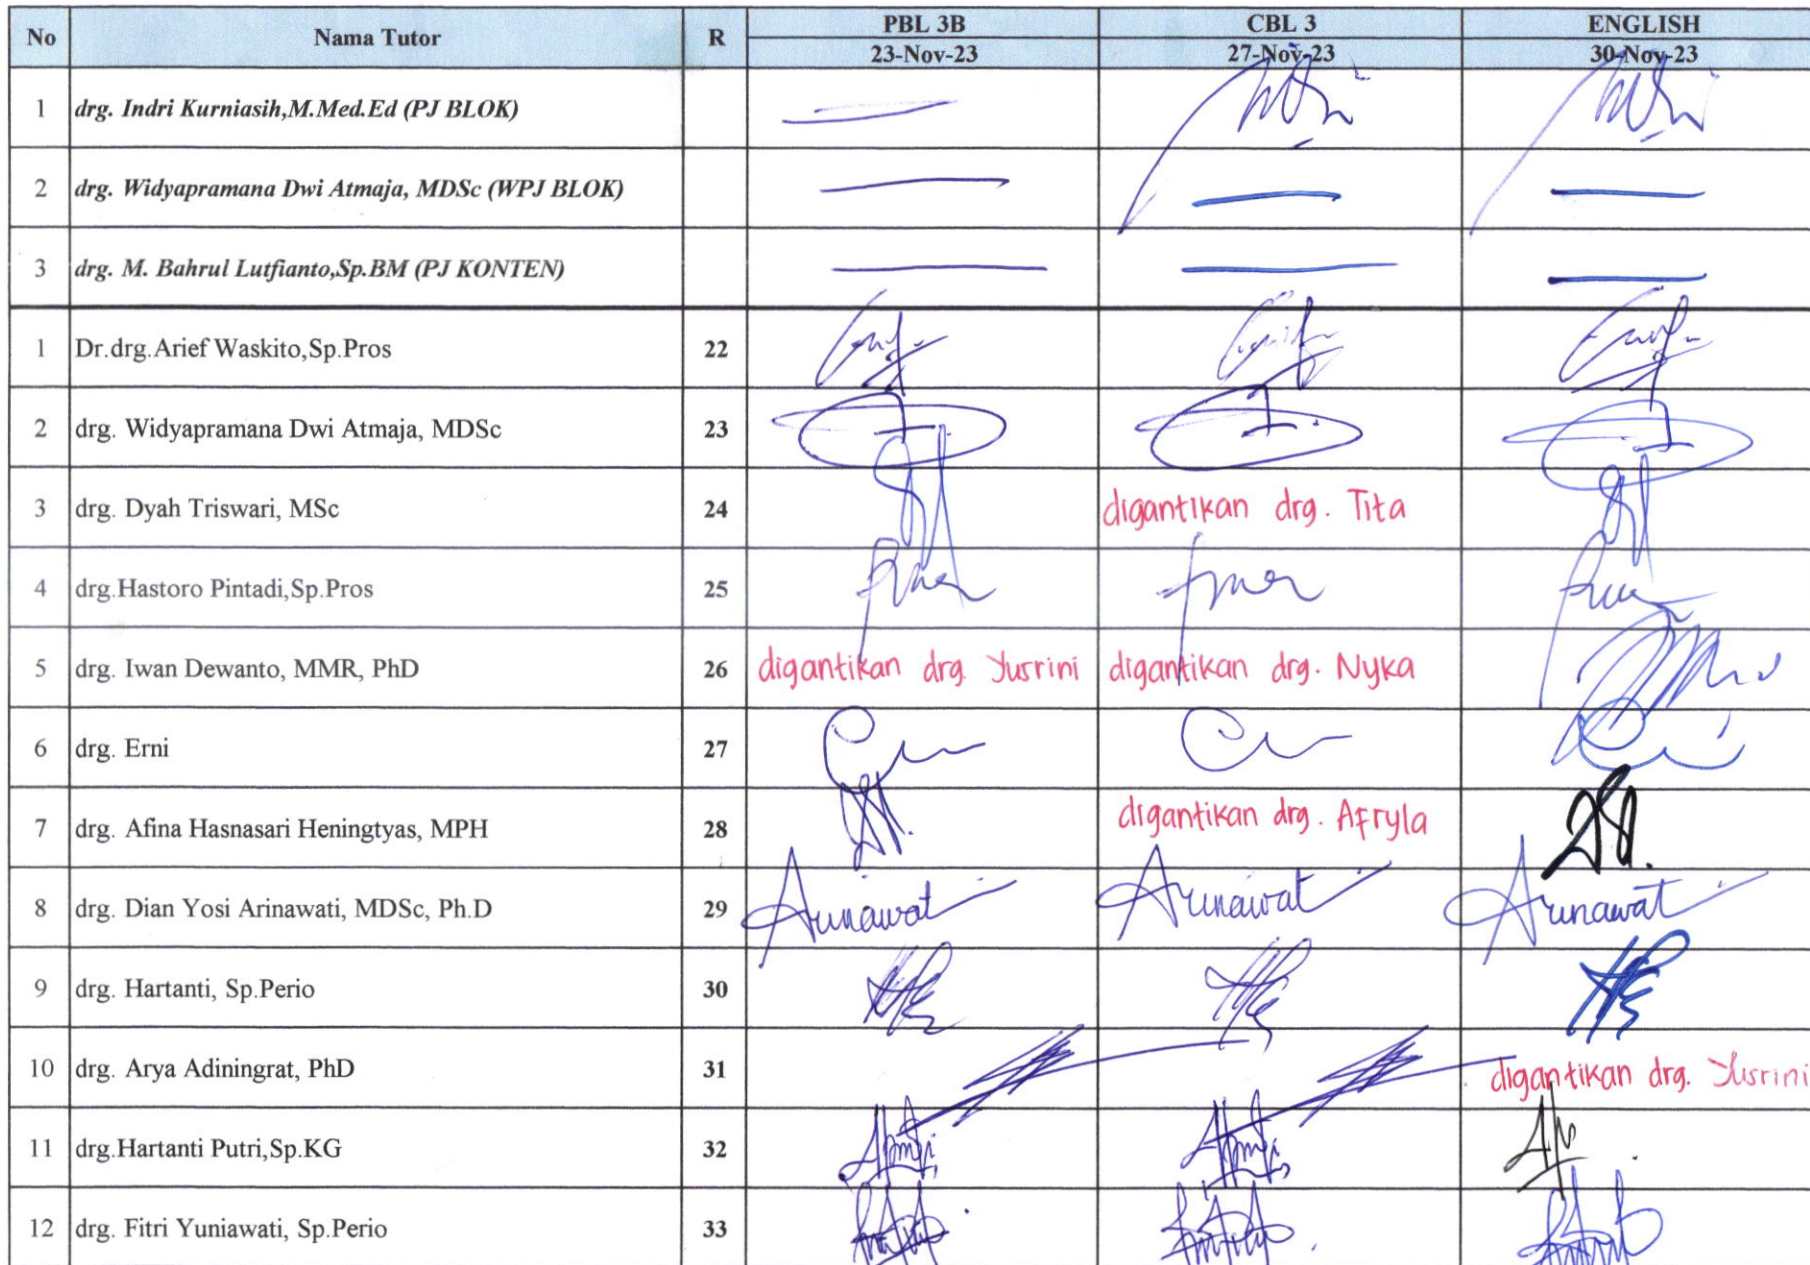 No Nama Tutor R PBL 3B CBL 3 ENGLISH
23-Nov-23 27-Nov-23 30-Nov-23
1 drg. Indri Kurniasih,M.Med.Ed (PJ BLOK)
2 drg. Widyapramana Dwi Atmaja, MDSc (WPJ BLOK)
3 drg. M. Bahrul Lutfianto,Sp.BM (PJ KONTEN)
1 Dr.drg.Arief Waskito,Sp.Pros 22
2 drg. Widyapramana Dwi Atmaja, MDSc 23
3 drg. Dyah Triswari, MSc 24 digantikan drg. Tita
4 drg.Hastoro Pintadi,Sp.Pros 25
5 drg. Iwan Dewanto, MMR, PhD 26 digantikan drg. Yusrini digantikan drg. Nyka
6 drg. Erni 27
7 drg. Afina Hasnasari Heningtyas, MPH 28 digantikan drg. Afryla
8 drg. Dian Yosi Arinawati, MDSc, Ph.D 29 Arinawati Arinawati Arinawati
9 drg. Hartanti, Sp.Perio 30
10 drg. Arya Adiningrat, PhD 31 digantikan drg. Yusrini
11 drg.Hartanti Putri,Sp.KG 32
12 drg. Fitri Yuniawati, Sp.Perio 33